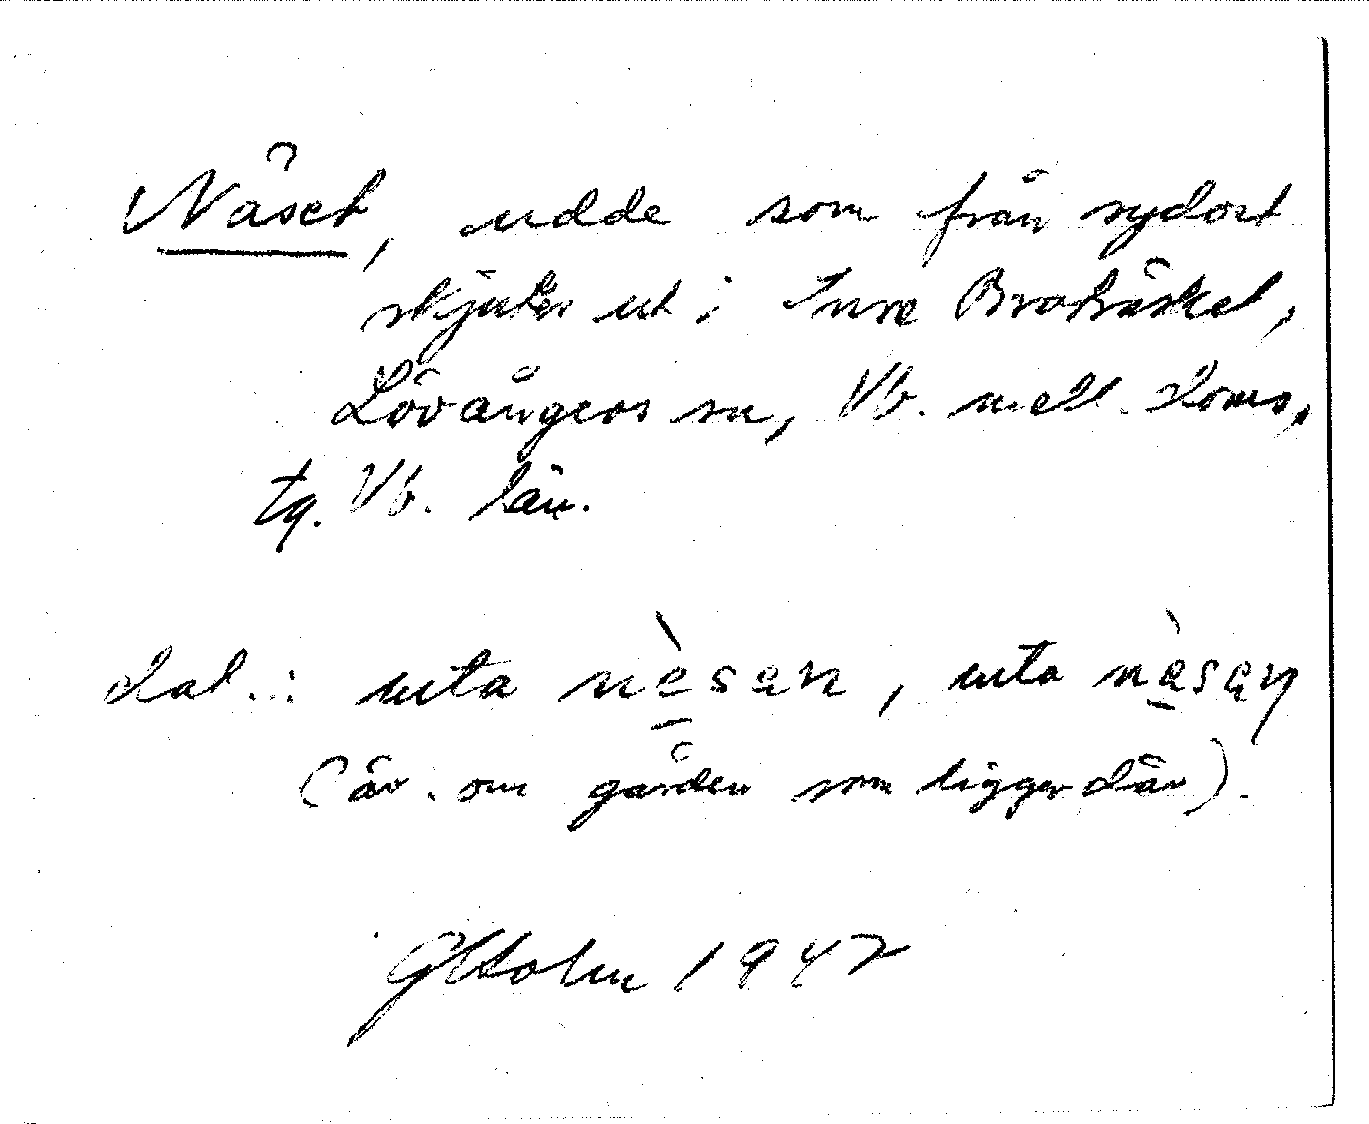 Näset, udde som från sydost
skjuter ut i Inre Broträsket,
Lövångers sn, Vb. mell. doms,
tg. Vb. län.
dal.: uta nèsen, uta nèsen
(äv. om gården som ligger där).
GHolm 1947